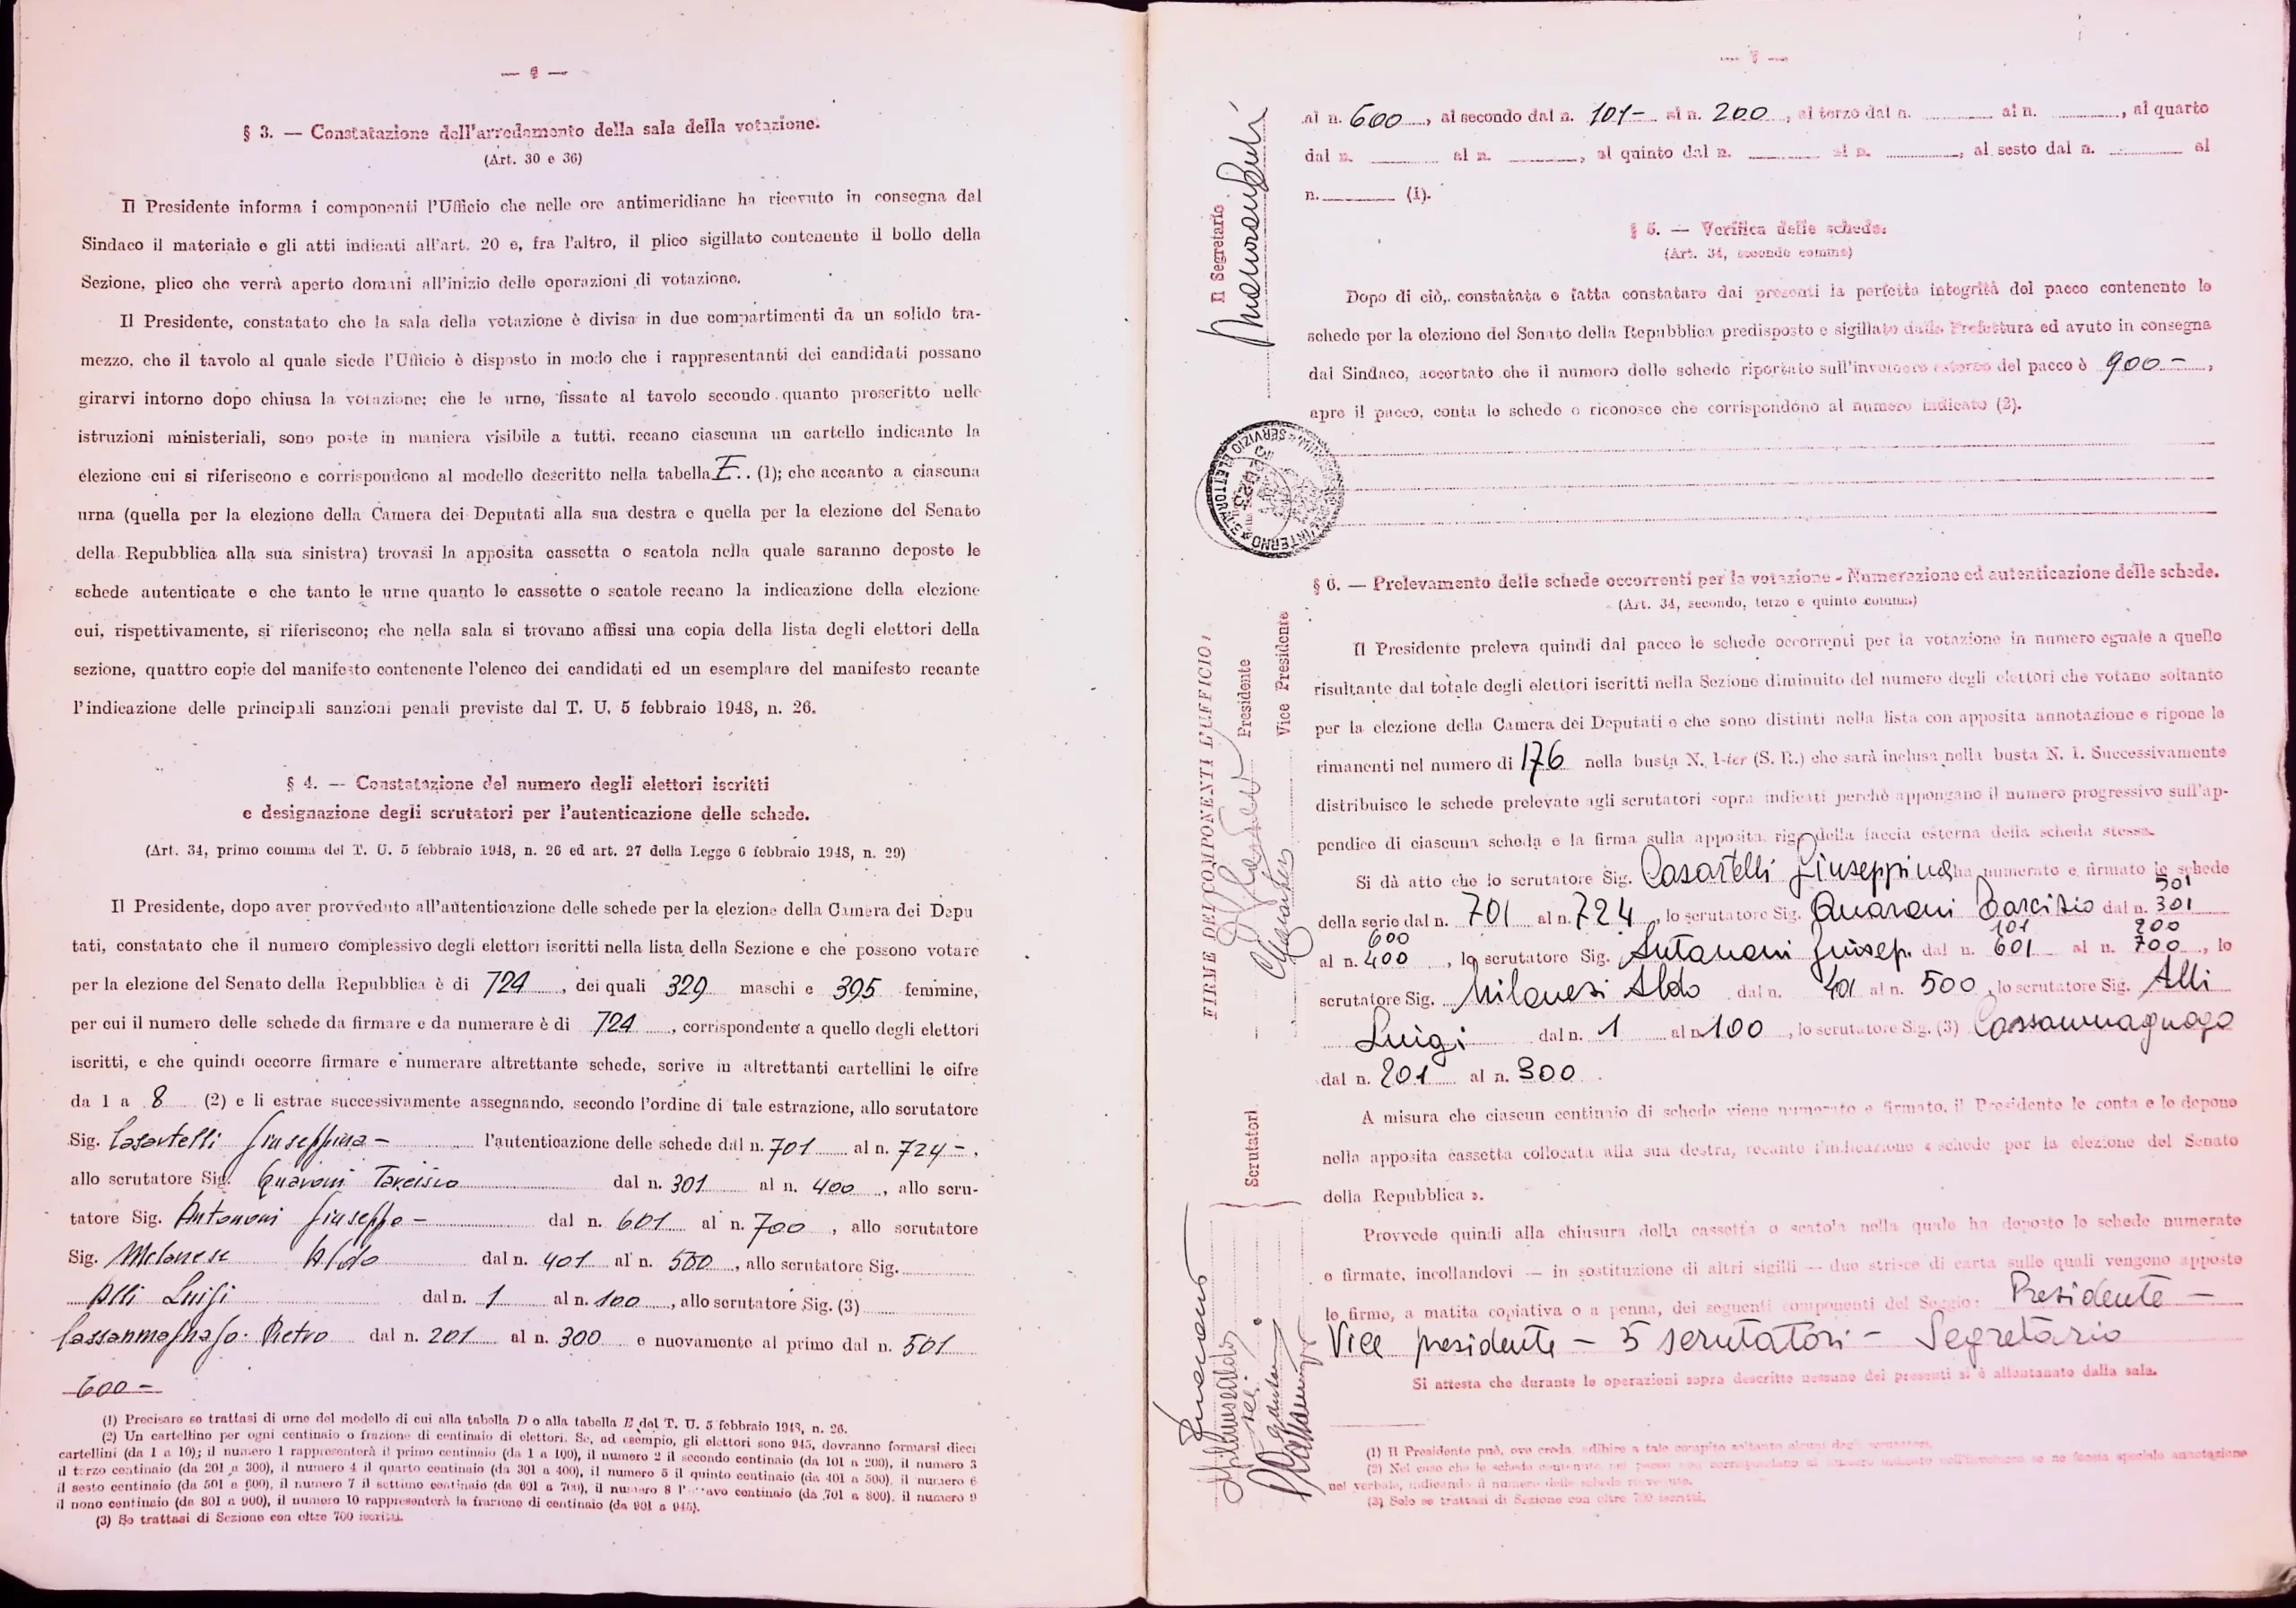 § 3. — Constatazione dell'arredamento della sala della votazione.
(Art. 30 e 36)
Il Presidente informa i componenti l'Ufficio che nelle ore antimeridiane ha ricevuto in consegna dal
Sindaco il materiale e gli atti indicati all'art. 20 e, fra l'altro, il plico sigillato contenente il bollo della
Sezione, plico che verrà aperto domani all'inizio delle operazioni di votazione.
Il Presidente, constatato che la sala della votazione è divisa in due compartimenti da un solido tra-
mezzo, che il tavolo al quale siede l'Ufficio è disposto in modo che i rappresentanti dei candidati possano
girarvi intorno dopo chiusa la votazione; che le urne, fissate al tavolo secondo quanto prescritto nelle
istruzioni ministeriali, sono poste in maniera visibile a tutti, recano ciascuna un cartello indicante la
elezione cui si riferiscono e corrispondono al modello descritto nella tabella E.. (1); che accanto a ciascuna
urna (quella per la elezione della Camera dei Deputati alla sua destra e quella per la elezione del Senato
della Repubblica alla sua sinistra) trovasi la apposita cassetta o scatola nella quale saranno deposte le
schede autenticate e che tanto le urne quanto le cassette o scatole recano la indicazione della elezione
cui, rispettivamente, si riferiscono; che nella sala si trovano affissi una copia della lista degli elettori della
sezione, quattro copie del manifesto contenente l'elenco dei candidati ed un esemplare del manifesto recante
l'indicazione delle principali sanzioni penali previste dal T. U. 5 febbraio 1948, n. 26.
§ 4. — Constatazione del numero degli elettori iscritti
e designazione degli scrutatori per l'autenticazione delle schede.
(Art. 34, primo comma del T. U. 5 febbraio 1948, n. 26 ed art. 27 della Legge 6 febbraio 1948, n. 29)
Il Presidente, dopo aver provveduto all'autenticazione delle schede per la elezione della Camera dei Depu
tati, constatato che il numero complessivo degli elettori iscritti nella lista della Sezione e che possono votare
per la elezione del Senato della Repubblica è di 724, dei quali 329 maschi e 395 femmine,
per cui il numero delle schede da firmare e da numerare è di 724, corrispondente a quello degli elettori
iscritti, e che quindi occorre firmare e numerare altrettante schede, scrive in altrettanti cartellini le cifre
da 1 a 8 (2) e li estrae successivamente assegnando, secondo l'ordine di tale estrazione, allo scrutatore
Sig. Casartelli Giuseppina - l'autenticazione delle schede dal n. 701 al n. 724 -,
allo scrutatore Sig. Quaroni Tarcisio dal n. 301 al n. 400, allo scru-
tatore Sig. Antononi Giuseppe - dal n. 601 al n. 700, allo scrutatore
Sig. Milanese Aldo dal n. 401 al n. 500, allo scrutatore Sig.
Alli Luigi dal n. 1 al n. 100, allo scrutatore Sig. (3)
Cassanmagnago Pietro dal n. 201 al n. 300 e nuovamente al primo dal n. 501
600 -
(1) Precisare se trattasi di urne del modello di cui alla tabella D o alla tabella E del T. U. 5 febbraio 1948, n. 26.
(2) Un cartellino per ogni centinaio o frazione di centinaio di elettori. Se, ad esempio, gli elettori sono 945, dovranno formarsi dieci
cartellini (da 1 a 10); il numero 1 rappresenterà il primo centinaio (da 1 a 100), il numero 2 il secondo centinaio (da 101 a 200), il numero 3
il terzo centinaio (da 201 a 300), il numero 4 il quarto centinaio (da 301 a 400), il numero 5 il quinto centinaio (da 401 a 500), il numero 6
il sesto centinaio (da 501 a 600), il numero 7 il settimo centinaio (da 601 a 700), il numero 8 l'ottavo centinaio (da 701 a 800), il numero 9
il nono centinaio (da 801 a 900), il numero 10 rappresenterà la frazione di centinaio (da 901 a 945).
(3) Se trattasi di Sezione con oltre 700 iscritti.
— 7 —
al n. 600, al secondo dal n. 101 - al n. 200, al terzo dal n. al n. , al quarto
dal n. al n. , al quinto dal n. al n. , al sesto dal n. al
n. (1).
§ 5. — Verifica delle schede.
(Art. 34, secondo comma)
Dopo di ciò, constatata e fatta constatare dai presenti la perfetta integrità del pacco contenente le
schede per la elezione del Senato della Repubblica predisposto e sigillato dalla Prefettura ed avuto in consegna
dal Sindaco, accertato che il numero delle schede riportato sull'involucro esterno del pacco è 900 -,
apre il pacco, conta le schede e riconosce che corrispondono al numero indicato (2).
§ 6. — Prelevamento delle schede occorrenti per la votazione - Numerazione ed autenticazione delle schede.
(Art. 34, secondo, terzo e quinto comma)
Il Presidente preleva quindi dal pacco le schede occorrenti per la votazione in numero eguale a quello
risultante dal totale degli elettori iscritti nella Sezione diminuito del numero degli elettori che votano soltanto
per la elezione della Camera dei Deputati e che sono distinti nella lista con apposita annotazione e ripone le
rimanenti nel numero di 176 nella busta N. 1-ter (S. R.) che sarà inclusa nella busta N. 1. Successivamente
distribuisce le schede prelevate agli scrutatori sopra indicati perchè appongano il numero progressivo sull'ap-
pendice di ciascuna scheda e la firma sulla apposita riga della faccia esterna della scheda stessa.
Si dà atto che lo scrutatore Sig. Casartelli Giuseppina ha numerato e firmato le schede
501
della serie dal n. 701 al n. 724, lo scrutatore Sig. Quaroni Tarcisio dal n. 301
600 101 200
al n. 400, lo scrutatore Sig. Antanoni Giusep. dal n. 601 al n. 700, lo
scrutatore Sig. Milanesi Aldo dal n. 401 al n. 500, lo scrutatore Sig. Alli
Luigi dal n. 1 al n. 100, lo scrutatore Sig. (3) Cassanmagnago
dal n. 201 al n. 300.
A misura che ciascun centinaio di schede viene numerato e firmato, il Presidente le conta e le depone
nella apposita cassetta collocata alla sua destra, recante l'indicazione « schede per la elezione del Senato
della Repubblica ».
Provvede quindi alla chiusura della cassetta o scatola nella quale ha deposto le schede numerate
e firmate, incollandovi — in sostituzione di altri sigilli — due strisce di carta sulle quali vengono apposte
le firme, a matita copiativa o a penna, dei seguenti componenti del Seggio: Presidente -
Vice presidente - 5 scrutatori - Segretario
Si attesta che durante le operazioni sopra descritte nessuno dei presenti si è allontanato dalla sala.
(1) Il Presidente può, ove creda, adibire a tale compito soltanto alcuni degli scrutatori.
(2) Nel caso che le schede contenute nel pacco non corrispondano al numero indicato sull'involucro se ne faccia speciale annotazione
nel verbale, indicando il numero delle schede rinvenute.
(3) Solo se trattasi di Sezione con oltre 700 iscritti.
FIRME DEI COMPONENTI L'UFFICIO:
Il Segretario
Presidente
Vice Presidente
Scrutatori